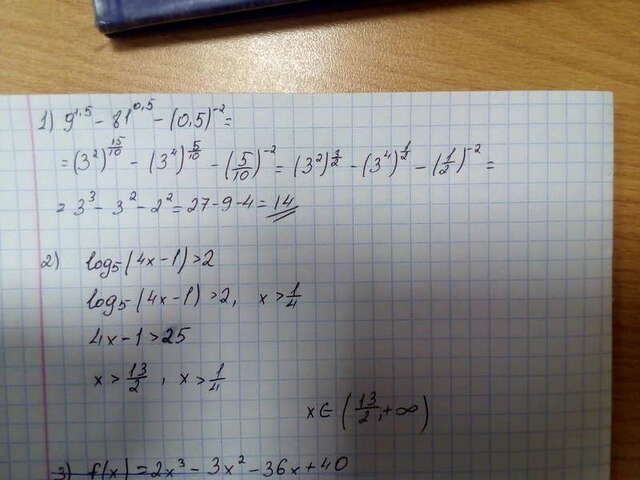 1) 9^1,5 - 81^0,5 - (0,5)^-2 =
= (3^2)^15/10 - (3^4)^5/10 - (5/10)^-2 = (3^2)^3/2 - (3^4)^1/2 - (1/2)^-2 =
= 3^3 - 3^2 - 2^2 = 27 - 9 - 4 = 14
2) log₅(4x-1)>2
log₅(4x-1)>2, x>1/4
4x-1>25
x>13/2, x>1/4
x∈(13/2, +∞)
3) f(x) = 2x^3 - 3x^2 - 36x + 40